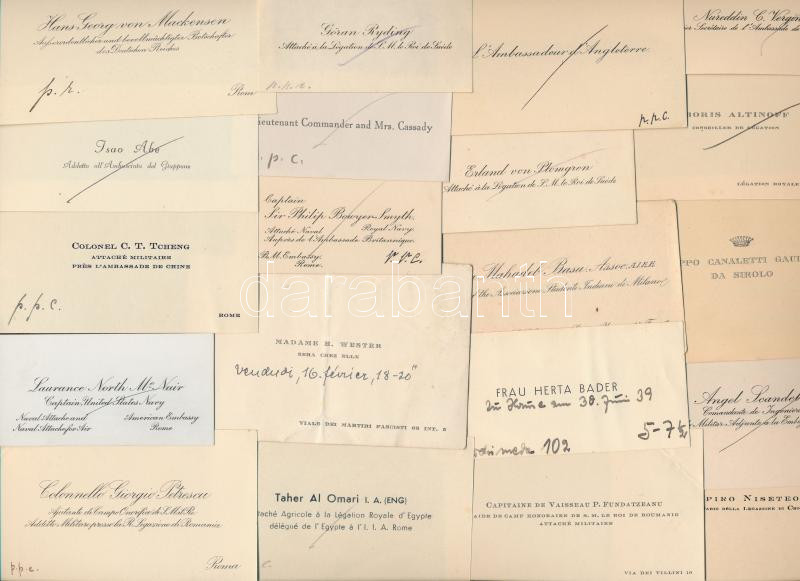 Hans Georg von Mackensen
Außerordentlicher und bevollmächtigter Botschafter
des Deutschen Reiches
p. r.
Rom
Göran Ryding
Attaché à la Légation de S. M. le Roi de Suède
p. p. c.
l'Ambassadeur d'Angleterre
p. p. c.
Nureddin C. Vergin
Secrétaire de l'Ambassade de
Isao Abe
Addetto all'Ambasciata del Giappone
Lieutenant Commander and Mrs. Cassady
p. c.
BORIS ALTINOFF
CONSEILLER DE LÉGATION
LÉGATION ROYALE
Erland von Plomgren
Attaché à la Légation de S. M. le Roi de Suède
Captain
Sir Philip Bowyer-Smyth
Attaché Naval Royal Navy
Auprès de l'Ambassade Britannique
B.M. Embassy
Rome
p. p. c.
COLONEL C. T. TCHENG
ATTACHÉ MILITAIRE
PRÈS L'AMBASSADE DE CHINE
p. p. c.
ROME
PPO CANALETTI GAU
DA SIROLO
Mahadeb Basu Assoc. AIEE
the Associazione Studente Indiani de Milano
MADAME H. WESTER
SERA CHEZ ELLE
Vendredi, 16. février, 18-20
VIALE DEI MARTIRI FASCISTI 62 INT. 5
Laurance North McNair
Captain United States Navy
Naval Attache and American Embassy
Naval Attache for Air Rome
FRAU HERTA BADER
zu Hause am 30. Juni 39
5-7½
102
Angel
Comandante de Ingenier
Militar Adjunto à la Emb
Colonnello Giorgio Petrescu
Aiutante di Campo Onorifico di S. M. il Re
Addetto Militare presso la R. Legazione di Romania
p.p.c.
Roma
Taher Al Omari I. A. (ENG)
taché Agricole à la Légation Royale d'Egypte
délégué de l'Egypte à l'I. I. A. Rome
c.
CAPITAINE DE VAISSEAU P. FUNDATZEANU
AIDE DE CAMP HONORAIRE DE S. M. LE ROI DE ROUMANIE
ATTACHÉ MILITAIRE
VIA DEI VILLINI 10
PIRO NISETEO
DELLA LEGAZIONE DI
darabanth